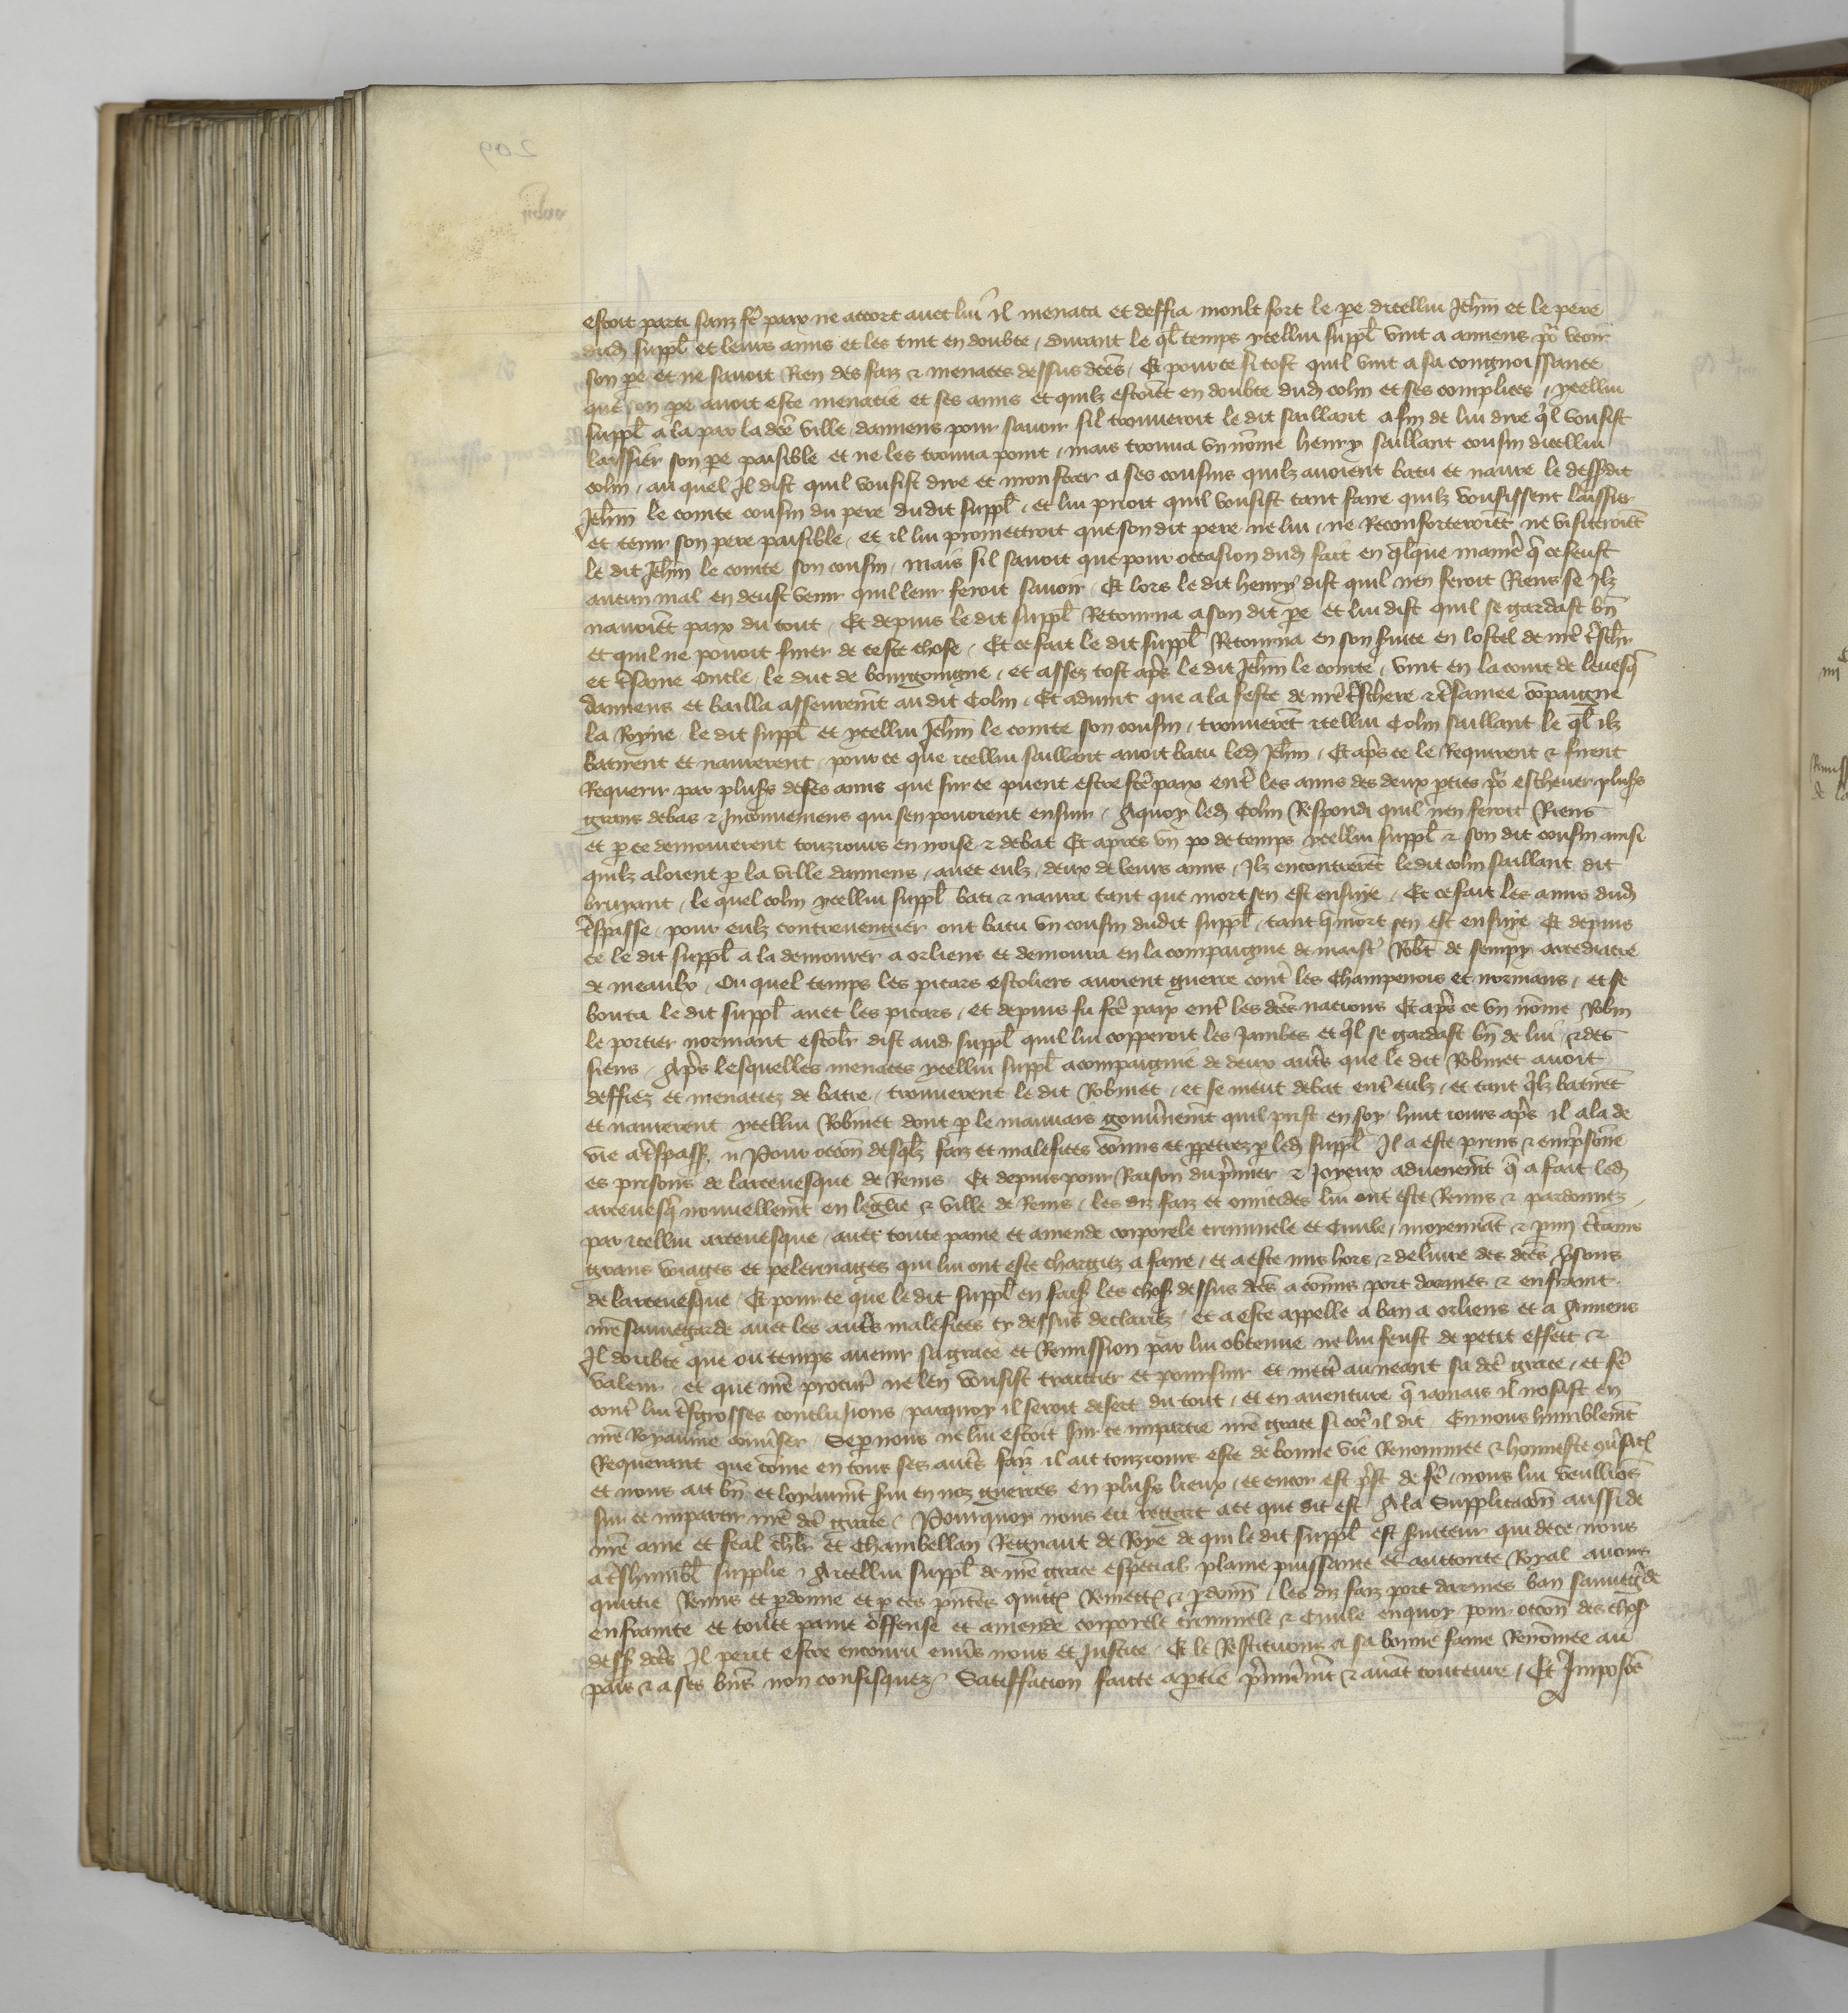 estoit parti sanz fē paix ne accort avec lui Il menaca et deffia moult fort le pe dicellui Jehn et le pere
dud suppl et leurs amis et les tint en doubte, durant le ql temps ycellui suppl vint a amiens pō veoir
son pe et ne savoit Rien des faiz & menaces dessus dces, Et pour ce si tost quil vint a sa congnoissance
que son pe avoit este menacie et ses amis et quilz estoiēt en doubte dud colin et ses complices, ycellui
suppl ala par la dce ville damiens pour savoir sil trouveroit le dit saillant afin de lui dire ql vousist
laissier son pe paisible et ne les trouva point, mais trouva un nōme henry saillant cousin dicellui
colin, au quel Il dist quil vousist dire et monstrer a ses cousins quilz avoient batu et navre le dessdit
Jehn le conte cousin du pere dudit suppl, et lui prioit quil vousist tant faire quilz vousissent laissier
et tenir son pere paisible, et il lui promettroit que son dit pere ne lui, ne Reconforteroiēt ne visiteroiēt
le dit Jehn le conte son cousin, mais sil savoit que pour occasion dud fait en qlque maniē q ce feust
aucun mal en deust venir quil leur feroit savoir, Et lors le dit henry dist quil nen feroit Riens se Ilz
navoiēt paix du tout, Et depuis le dit suppl Retourna a son dit pe et lui dist quil se gardast bn
et quil ne povoit finer de ceste chose, Et ce fait le dit suppl Retourna en son suite en lostel de nrē tsch
et tsame Oncle, le duc de bourgoingne, et assez tost aps le dit Jehn le conte, vint en la court de levesq
damiens et bailla asseuremt au dit Colin, Et advint que a la feste de nrē tschere & tsamee cōpaigne
la Royne le dit suppl et ycellui Jehn le conte son cousin, trouverēt icellui Colin saillant le ql ilz
batirent et navrerent, pour ce que icellui saillant avoit batu led Jehn, Et aps ce le Requirent & firent
Requerir par plusrs de ses amis que sur ce puent estre fce paix entre les amis des deux pties pō eschever plusrs
grans debas & Inconveniens qui sen povoient ensuir, Aquoy led Colin Respondi quil nen feroit Riens
et p ce demourerent touzjours en noise & debat Et apres un po de temps ycellui suppl & son dit cousin ainsi
quilz aloient p la ville damiens, avec eulz, deux de leurs amis, Ilz encontrerēt ledit colin saillant dit
bruyant, le quel colin ycellui suppl bati & navra tant que mort sen est ensuye, Et ce fait les amis dud
tspasse, pour eulz contrevengier ont batu un cousin dudit suppl, tant q mort sen est ensuye Et depuis
ce le dit suppl a la demourer a orliens et demoura en la compaignie de maistr Robt de sempy arcediacre
de meaulx, Ou quel temps les picars escoliers avoient guerre contr les Champenois et normans, et se
bouta le dit suppl avec les picars, et depuis fu fce paix ent les dces nacions Et aps ce un nōme Robin
le portier normant escolr dist aud suppl quil lui copperoit les Jambes et ql se gardast bn de lui, & des
siens, Aps lesquelles menaces ycellui suppl acompaignie de deux autrs que le dit Robinet avoit
deffiez et menaciez de batre, trouverent le dit Robinet, et se meut debat ent eulz, et tant qlz batirēt
et navrerent ycellui Robinet dont p le mauvais gouvnemt quil prist en soy huit jours aps il ala de
vie a tspasst. Pour occon desqlz faiz et malefices cōmis et ppetrez p led suppl Il a este prins & empsone
es prisons de larcevesque de Reins Et depuis pour Raison du pmier & Joyeux advenemt q a fait led
arcevesq nouvellemt en leglie & ville de Reins, les diz faiz et omicides lui ont este Remis & pardonnez
par icellui arcevesque, avec toute paine et amende corporele criminele et Civile, moyennāt & pmi ctains
grans voiages et pelerinages qui lui ont este chargiez a faire, et a este mis hors & delivre des dces psons
de larcevesque, Et pour ce que le dit suppl en fais les chos dessus dces a cōmis port darmes & enfraint
nrē sauvegarde avec les autrs malefices cy dessus declairez, et a este appelle a ban a orliens et a Amiens
Il doubte que ou temps avenir sa grace et Remission par lui obtenue ne lui feust de petit effect &
valeur, et que nrē procur ne len vousist traictier et poursuir et mettr au neant sa dce grace, et fē
contr lui tsgrosses conclusions, parquoy il seroit desert du tout, et en aventure q jamais il nosast en
nrē Royaume convser, Se p nous ne lui estoit sur ce impartie nrē grace si cōe il dit, En nous humblemt
Requerant que cōme en tous ses autrs faiz il ait touzjours este de bonne vie Renommee & honneste cōvsacō
et nous ait bn et loyaumt svi en noz guerres en plusrs lieux, et encor est pst de fē, nous lui veullions
sur ce impartir nrē dce grace, Pourquoy nous eu regart a ce que dit est Ala Supplicacōn aussi de
nrē ame et feal chlr et Chambellan Regnaut de Roye de qui le dit suppl est suiteur qui de ce nous
a tshumblt supplie, A icellui suppl de nrē grace especial plaine puissance et auctorite Royal avons
quittie Remis et pdonne et p ces pntes quittōs Remettōs & pdonn, les diz faiz port darmes ban sauvegde
enfrainte et toute paine offense et amende corporele criminele & Civile enquoy pour occon des chos
dess dces Il peut estre encouru envs nous et Justice, Et le Restituons a sa bonne fame Renōmee au
pais & a ses bns non confisquez, Satiffacion faicte aptie pmieremt & avāt toute euvre, Et Imposōs